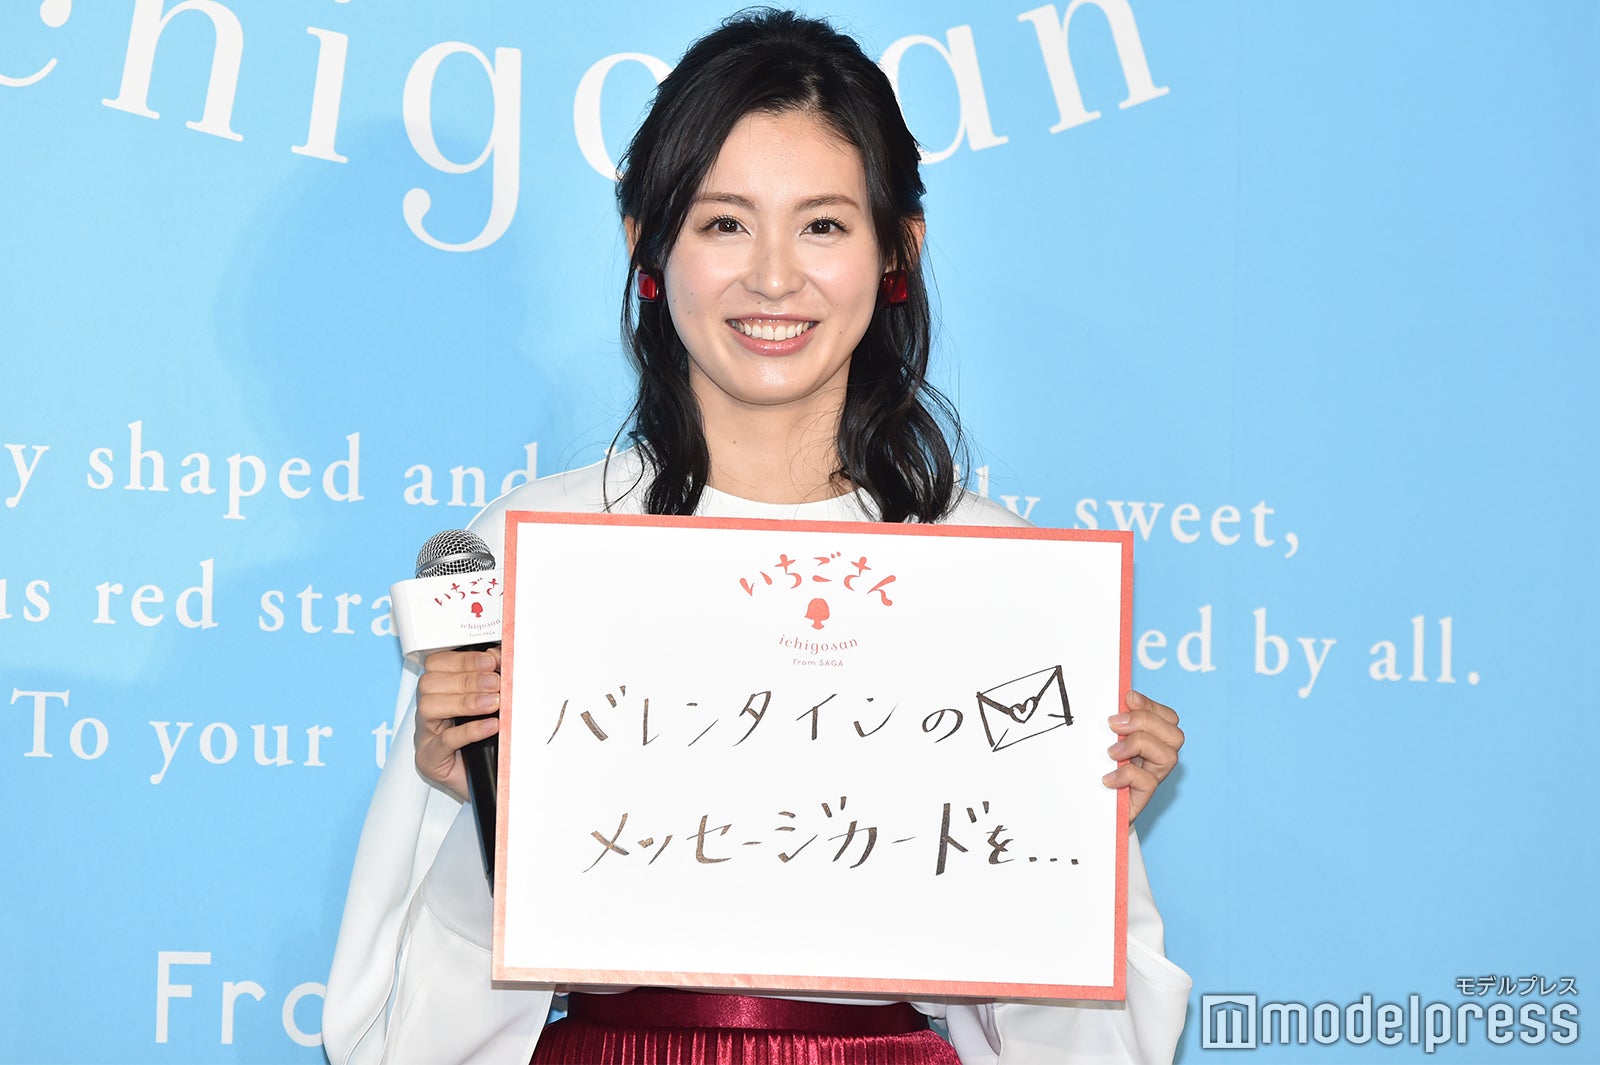 ichigosan
y shaped and
ly sweet,
us red
ed by all.
To your
いちごさん
ichigosan
From SAGA
いちごさん
ichigosan
From SAGA
バレンタインの
メッセージカードを...
モデルプレス
modelpress